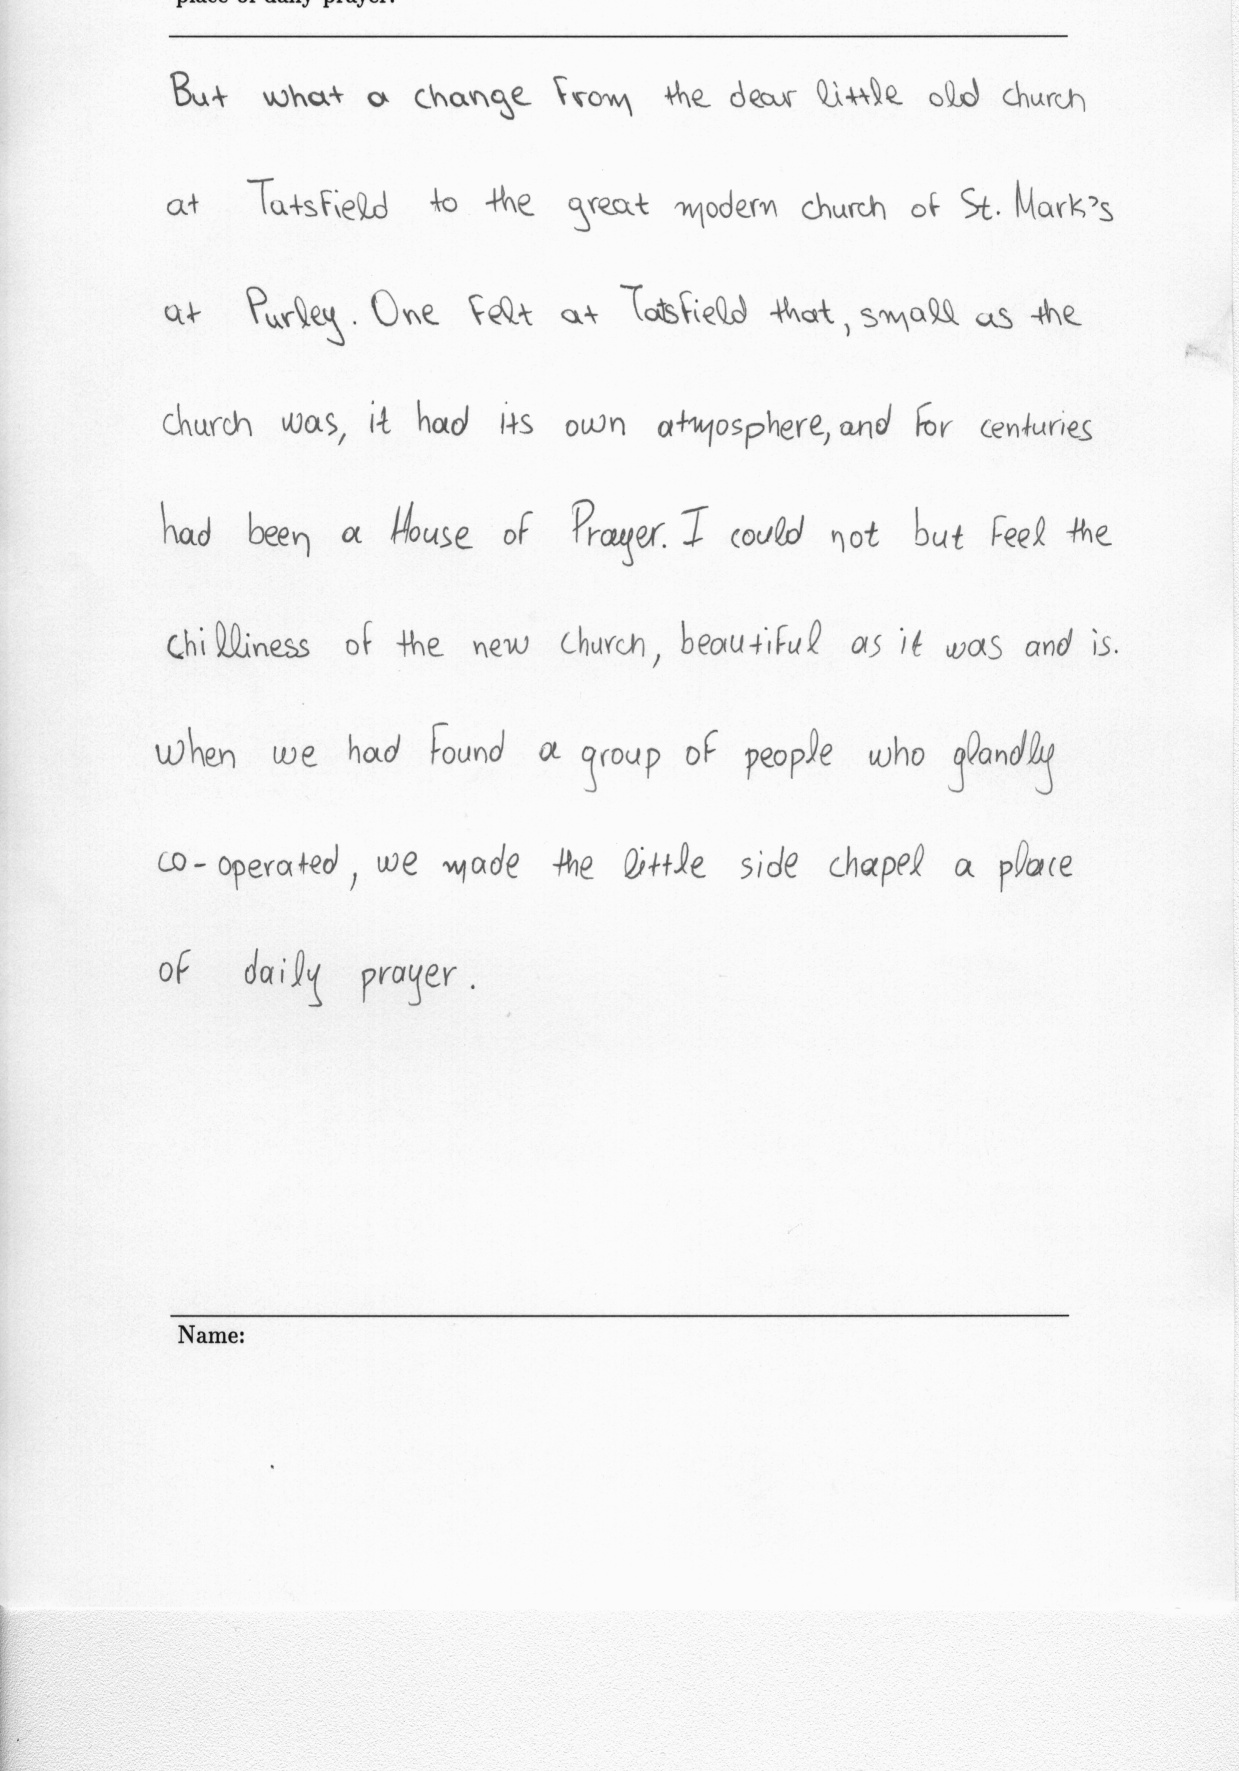 place of daily prayer.
But what a change from the dear little old church
at Tatsfield to the great modern church of St. Mark's
at Purley. One felt at Tatsfield that, small as the
church was, it had its own atmosphere, and for centuries
had been a House of Prayer. I could not but feel the
chilliness of the new church, beautiful as it was and is.
When we had found a group of people who glandly
co-operated, we made the little side chapel a place
of daily prayer.
Name: